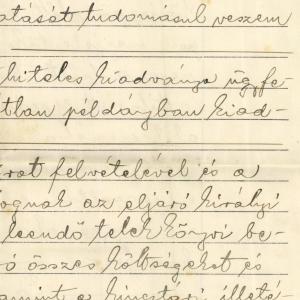 atását tudomásul veszem
hiteles kiadványa ügyfe-
tlan példányban kiad-
irat felvételével és a
ognak az eljáró királyi
leendő telekkönyvi be-
ó összes költségeket és
amint a kincstári illeté-